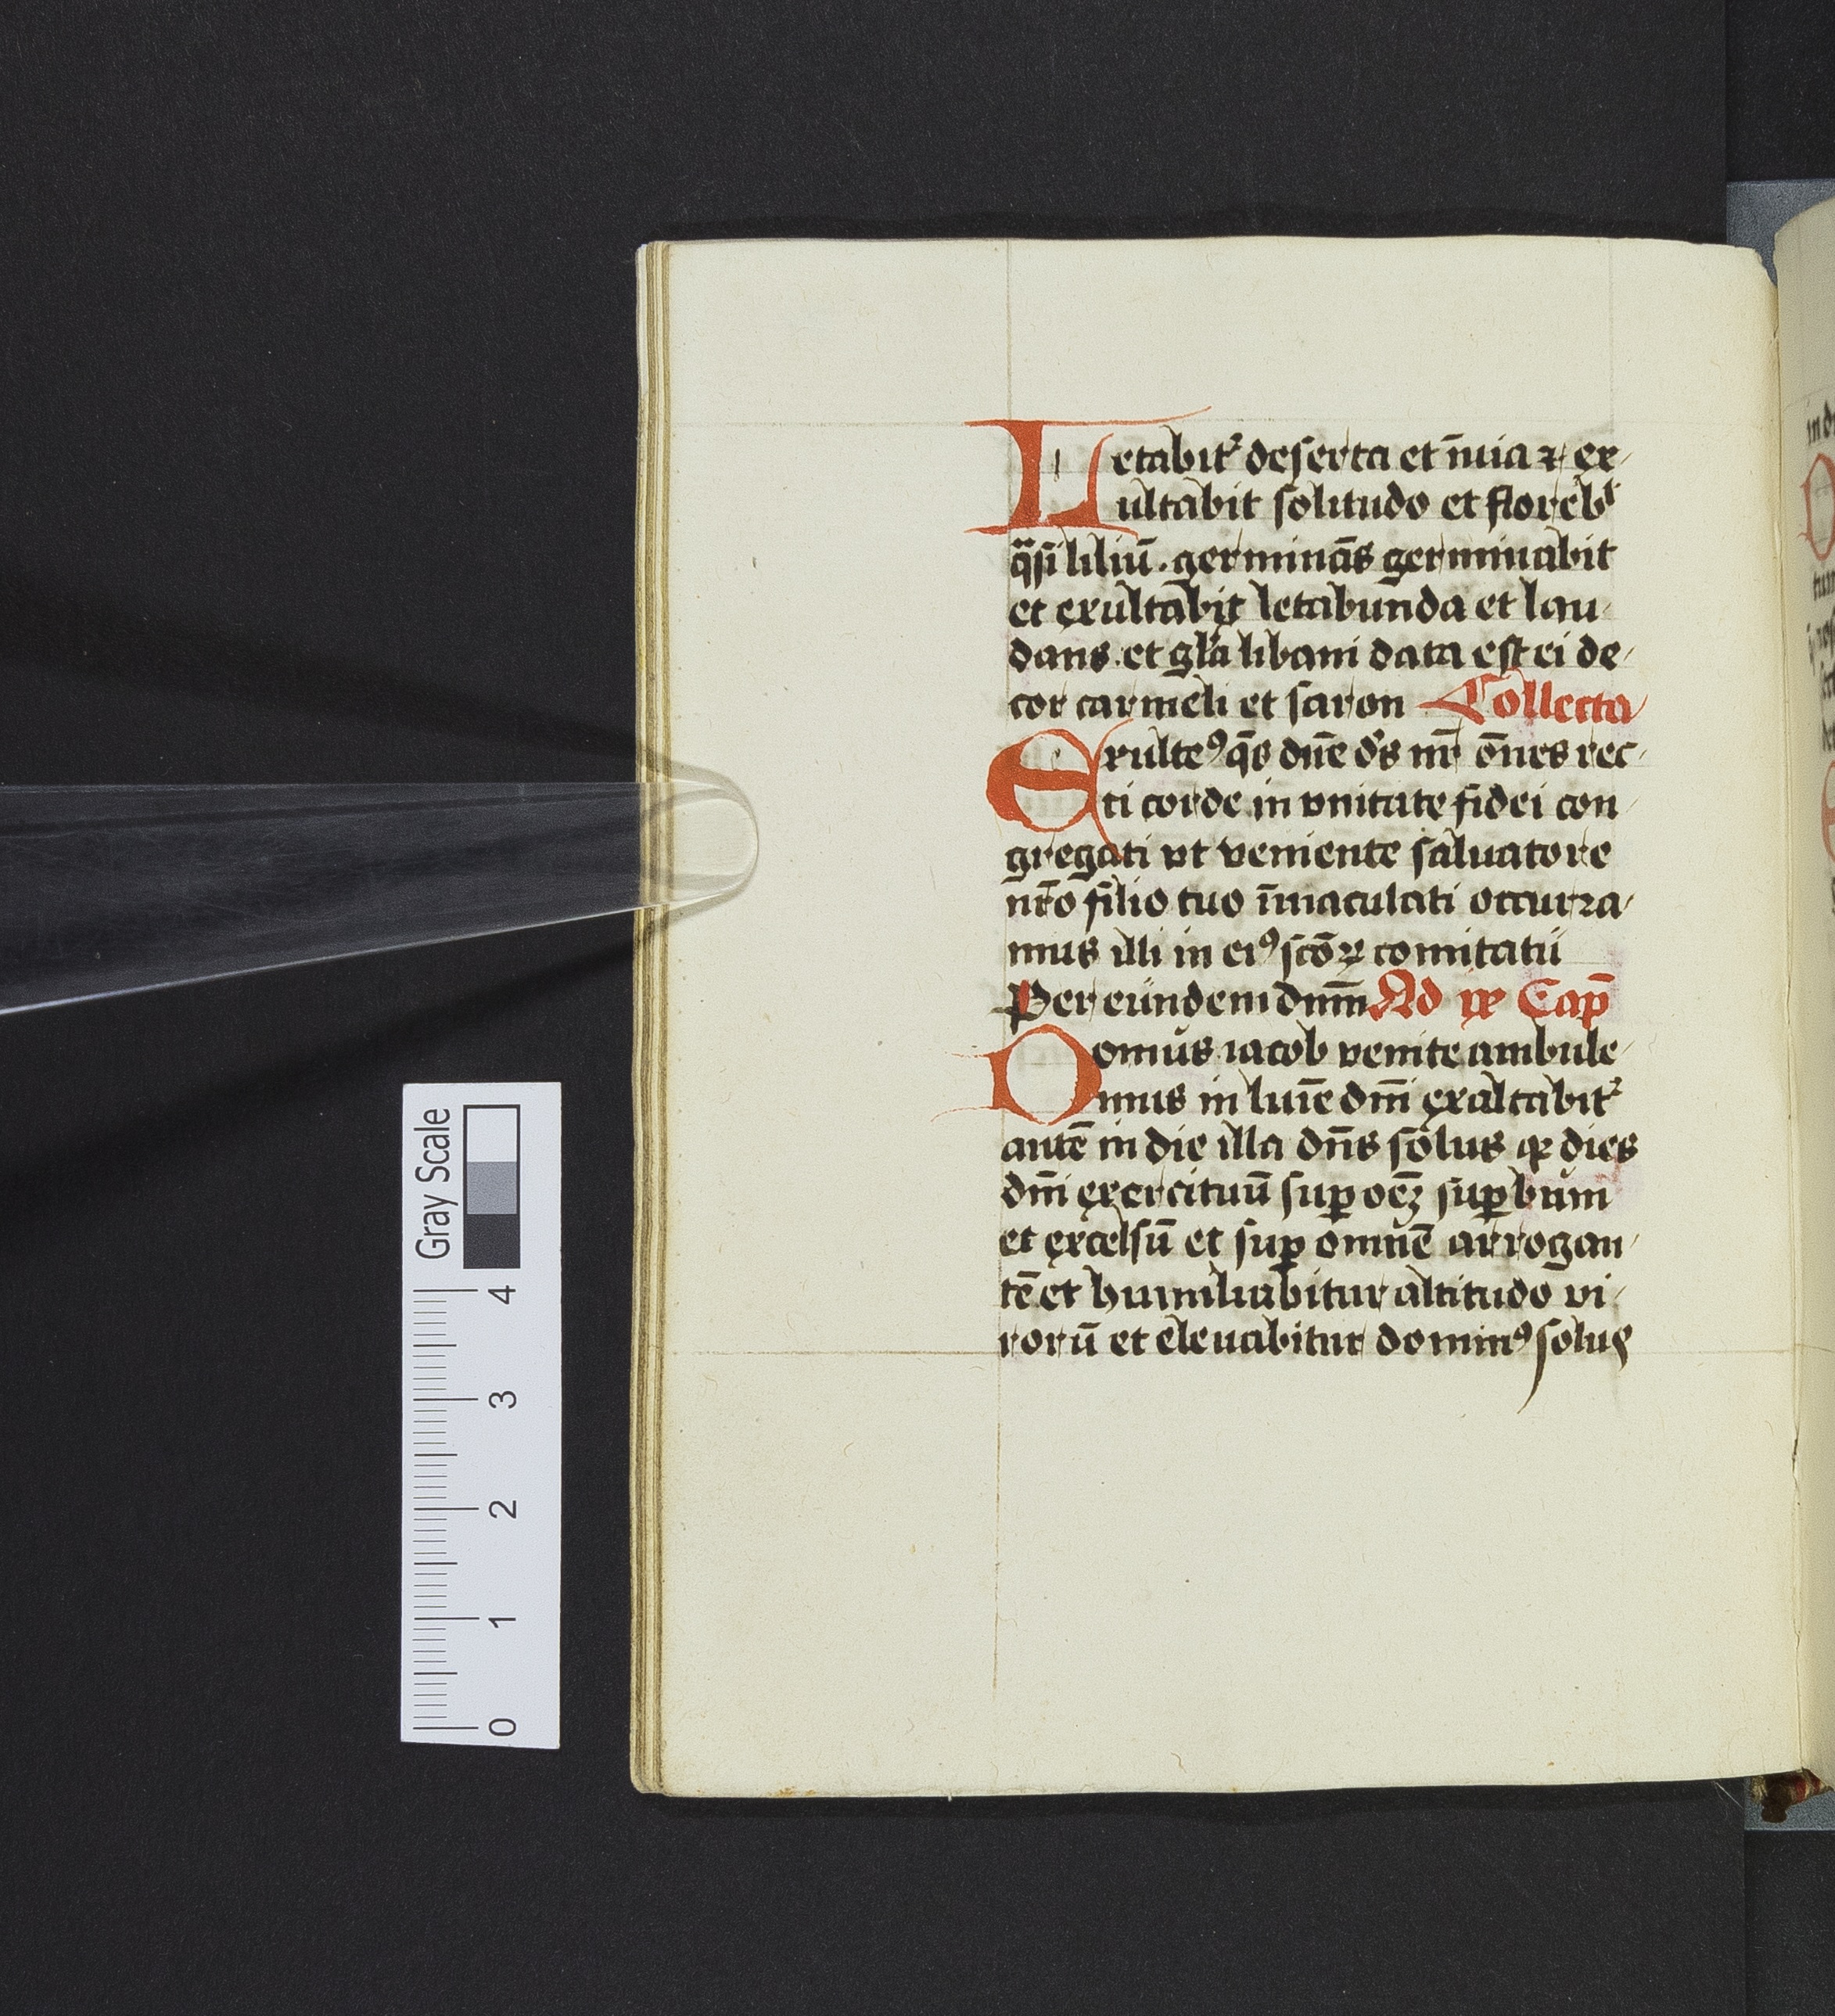 Letabit᷑ deserta et īnuia ⁊ ex
ultabit solitudo et floreb᷑
q̈si liliū. germinās germinabit
et exultabit letabunda et lau
dans. et gl̄a libani data est ei de
cor carmeli et saron Collecta
Exulteꝯ q̄s dn̄e d̾s nr̄ om̄es rec
ti corde in vnitate fidei con
gregati vt veniente saluatore
nr̄o filio tuo īmaculati occurra
mus illi in eiꝯ sc̄oꝝ comitatū
Per eundem dn̄m Ad ix Cap̄
Domus iacob venite ambule
mus in lumīe dn̄i exaltabit᷑
autē in die illa dn̄s solus qꝛ dies
dn̄i exercituū suꝑ oēꝫ suꝑbum
et excelsū et suꝑ omnē arrogan
tē et humiliabitur altitudo vi
rorū et eleuabitur dominꝯ solus
Gray Scale
0 1 2 3 4